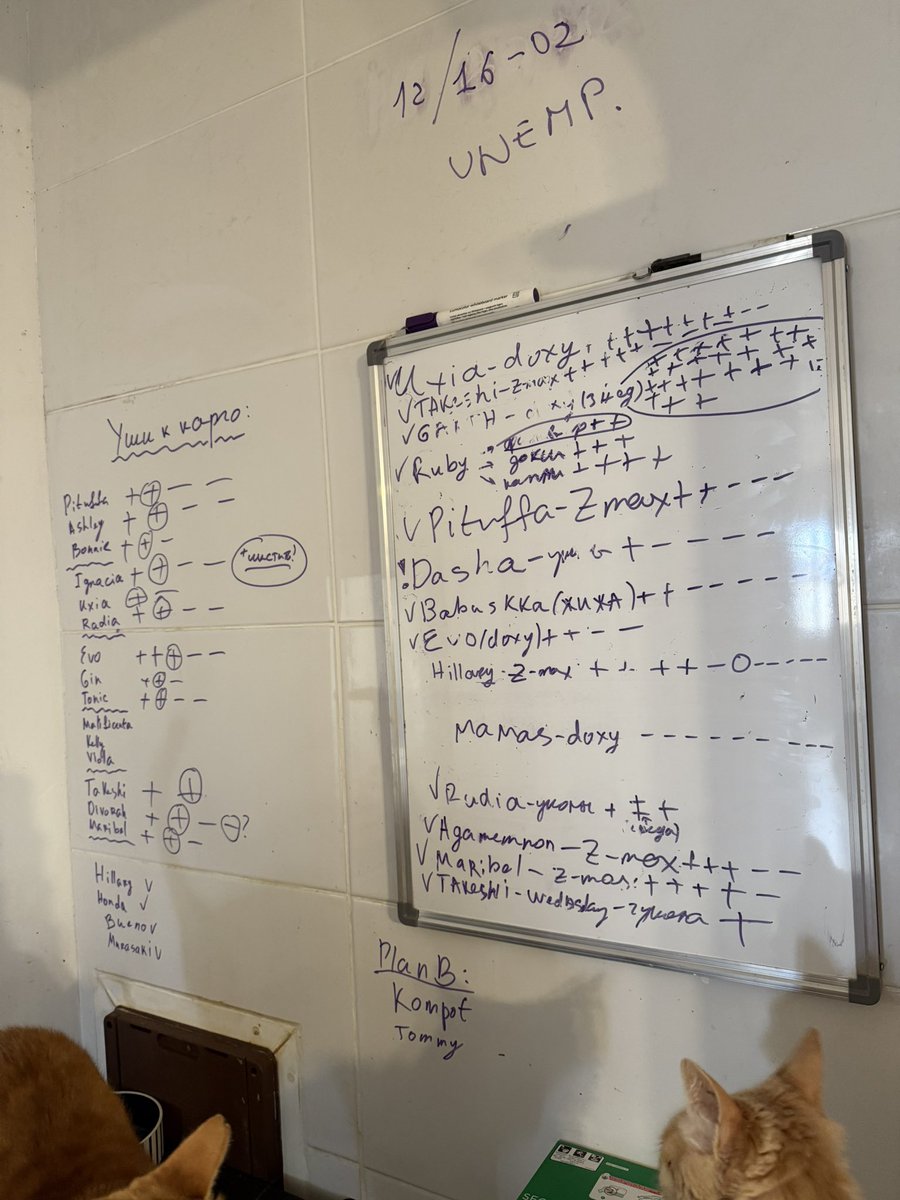 12/16-02
UNEMP.
Uxia-doxy, + + + + + + + + - -
√TAKEshi-Z-max + + + + + +
√GARTH - (3 нед)
√Ruby → + +
доксы + + +
капли + + + +
√Pituffa-Zmax + + - - -
!Dasha- + - - - - -
√Babuskka(ЖИЖА) + + - - - - -
√Evo(doxy) + + - -
Hillary-Z-max + + + + - O - - - - -
Mamas-doxy - - - - - - - - -
√Radia-уколы + + +
(среда)
√Agamemnon-Z-max + + + - -
√Maribel-Z-max: + + + + -
√TAKEshi-wednesday-2 укола +
Уши к каро:
Pituffa + ⊕ - -
Ashley + ⊕ - -
Bonnie + ⊕ -
Ignacia + ⊕ - - + чистить!
Uxia ⊕ -
Radia + ⊕ - -
Evo + + ⊕ - -
Gin + ⊕ -
Tonic + ⊕ - -
Kelly
Viola
Takeshi + ⊕
Divorah + ⊕ - ⊖?
Maribel + ⊕ -
Hillary √
Honda √
Bueno √
Murasaki √
Plan B:
Kompot
Tommy